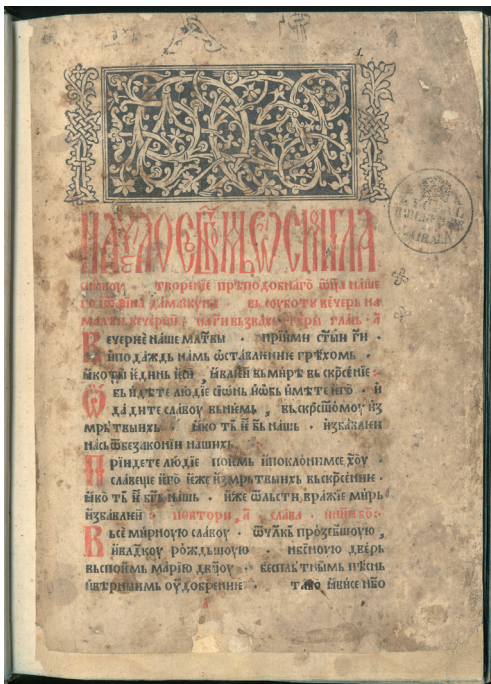 твореніе прѣподобнаго ѡц҃а наше
го іѡан̾на дамаскина · въ соуботꙋ вечерь на
малѣи вечерни · на г҃и възвахь
Вечернѥ наше мл҃твы · прїими ст҃ыи г҃и ·
и подаждь намь ѡставлѥниѥ грѣхомь ·
ꙗко ты ѥдинь ѥси, ꙗвлѥи вь мирѣ вьскр҃сениѥ :
Ѡбьидѣте людїе сїѡнь и ѡбьимѣте ѥго · и
дадите славоу вь нѥмь, вьскр҃сьшомоу из
мрьтвыихь · ꙗко ть и б҃ь нашь · избавлѥи
нась ѿ безаконїи нашихь
Прїидете людїе поѥмь и поклонимсе х҃оу ·
славеще ѥго ѥже из мрьтвыихь вьскр҃сениѥ ·
ꙗко ть и б҃ь нашь · иже ѿ льсти вражїѥ мирь
избавлѥи · повтори, а҃ слава · и нин҃ꙗ б҃о :
Вьсемирноую славоу · ѿ чл҃кь прозебшоую,
и вл҃дкоу рождьшоую · нб҃сноую дверь
вьспоимь марїю дв҃оу · бесплътнымь пѣснь
и вѣрныимь оудобрениѥ · ꙗви се нб҃о